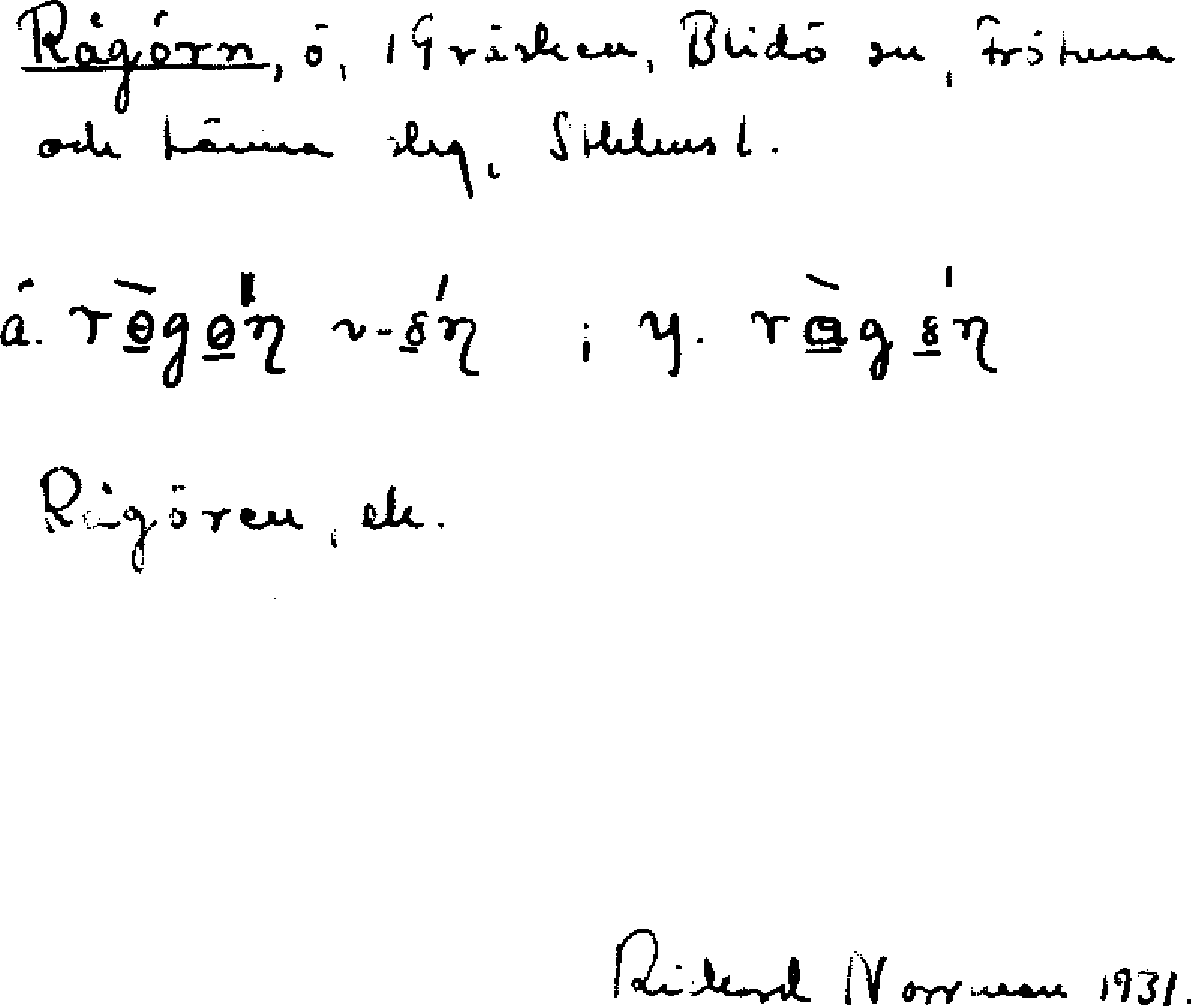 Rågörn, ö, i Gräsken, Blidö sn, Frötuna
och Länna skg, Sthlms l.
ä. rө̀gө́ŋ ~-ɣ́ŋ ; y. rɑ̀gɣ́ŋ
Rågören, ek.
Rickard Norrman 1931.